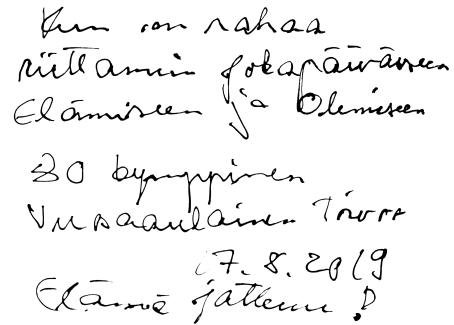 Kun on rahaa
riittämiin jokapäiväiseen
Elämiseen ja Olemiseen
80 kymppinen
Vuosaarilainen
17.8.2019
Elämä jatkuu!